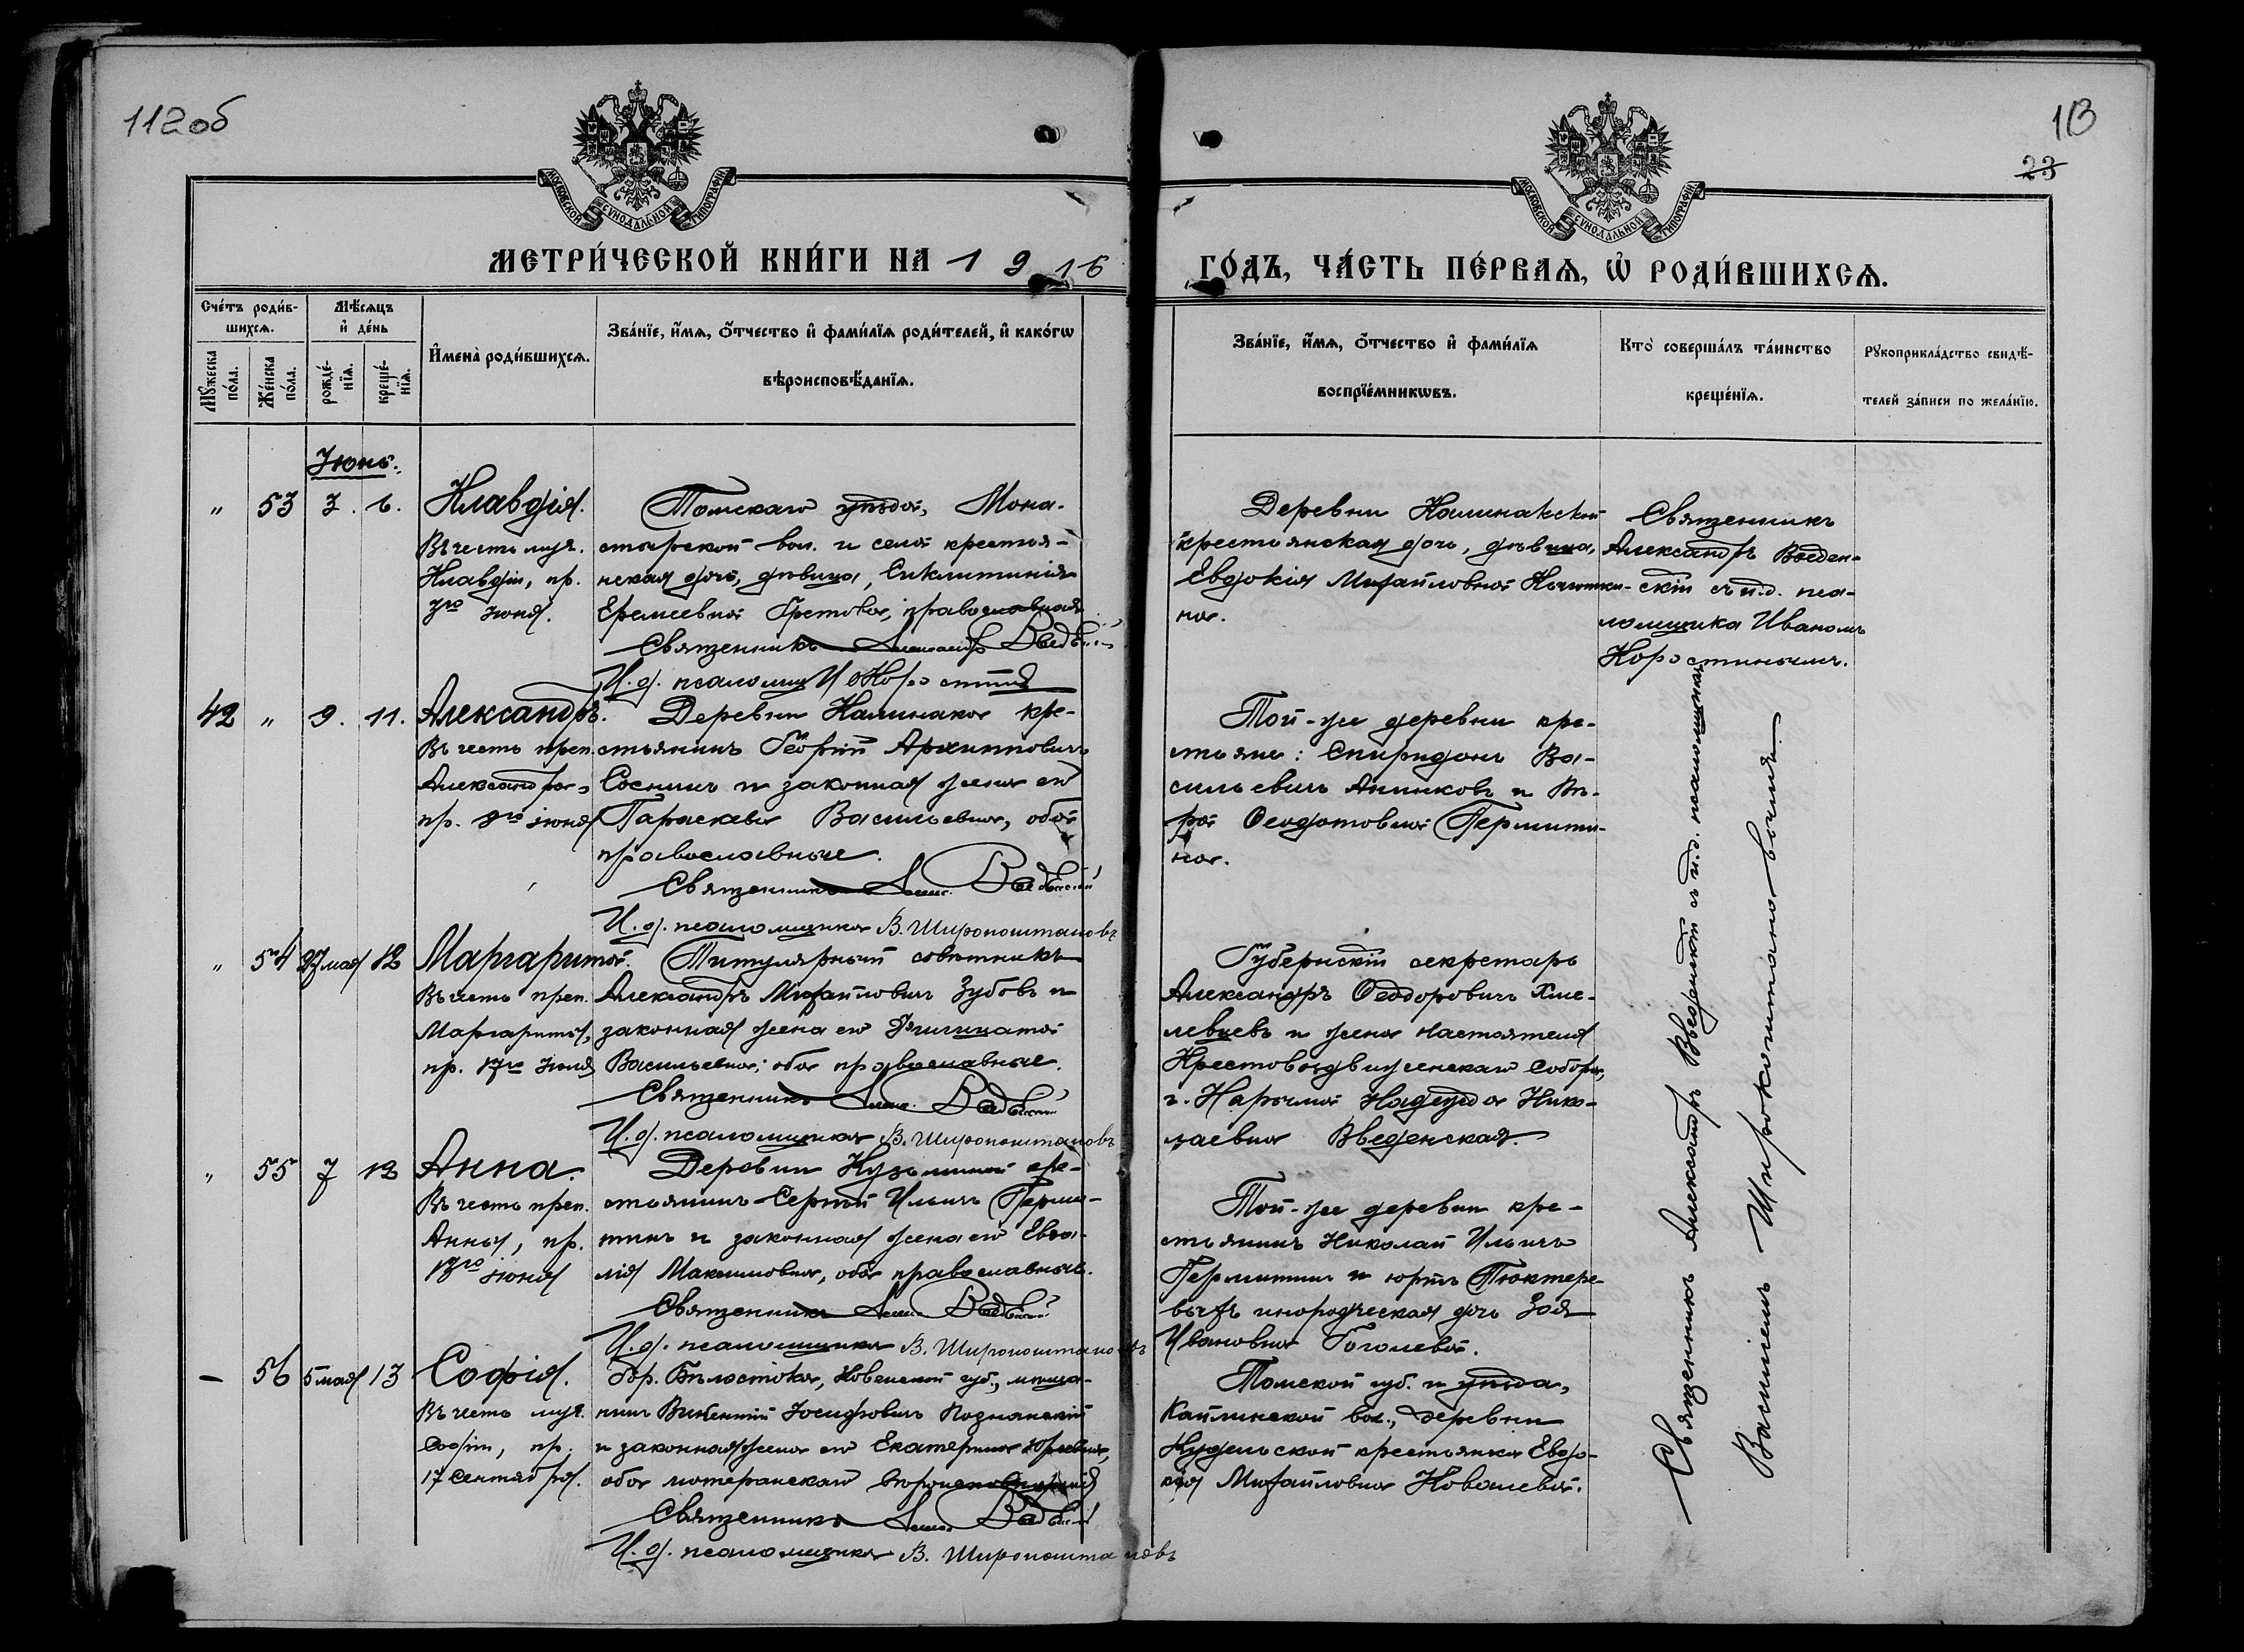 112об
113
23
МОСКОВСКОЙ СУНОДАЛЬНОЙ ТИПОГРАФIИ
МОСКОВСКОЙ СУНОДАЛЬНОЙ ТИПОГРАФIИ
МЕТРИ́ЧЕСКОЙ КНИ́ГИ НА 1916
ГО́ДЪ, ЧА́СТЬ ПЕ́РВАѦ, Ѡ РОДИ́ВШИХСѦ.
Сче́тъ роди́в-
шихсѧ.
Мѣ́сѧцъ
и де́нь
Мꙋ́жеска
по́ла.
Же́нска
по́ла.
рожде́-
нїѧ.
креще́-
нїѧ.
Имена̀ роди́вшихсѧ.
Зва́нїе, и́мѧ, о́тчество и фами́лїѧ роди́телей, и како́гѡ
вѣроисповѣ́данїѧ.
Зва́нїе, и́мѧ, о́тчество и фами́лїѧ
воспрїе́мникѡвъ.
Кто̀ соверша́лъ та́инство
креще́нїѧ.
Рꙋкоприкла́дство свидѣ́-
телей за́писи по жела́нїю.
Iюнь.
" 53 3. 6. Клавдiя.
Въ честь муч.
Клавдiи, пр.
7го Iюня.
Томскаго уѣзда, Мона-
стырской вол. и села крестья-
нская дочь, дѣвица, Синклитикiя
Еремеевна Бретова, православная
Священникъ Александръ Введенскiй
И. д. псаломщ. И Коростинъ
Деревни Калинакской
крестьянская дочь, дѣвица,
Евдокiя Михайловна
на.
Священникъ
Александръ Введен-
скiй съ и.д. пса-
ломщика Иваномъ
Коростинымъ.
42 " 9. 11. Александръ.
Въ честь преп.
Александра,
пр. 9го iюня
Деревни Калинака кре-
стьянинъ Георгiй Архиповичъ
Соснинъ и законная жена его
Параскева Васильевна, оба
православные.
Священникъ Алекс. Введенскiй
И. д. псаломщика В. Широкоштановъ
Той-же деревни кре-
стьяне: Спиридонъ Ва-
сильевичъ Аникковъ и Вѣ-
ра Ѳеодотовна Пермити-
на.
" 54 27 мая 12 Маргарита.
Въ честь преп.
Маргариты,
пр. 17го Iюня
Титулярный совѣтникъ
Александръ Михайловичъ Зубовъ и
законная жена его
Васильевна; оба православные.
Священникъ Алекс. Введенскiй
И. д. псаломщика В. Широкоштановъ
Губернскiй секретарь
Александръ Ѳеодоровичъ Хме-
левцевъ и жена настоятеля
Крестовоздвиженскаго собора,
г. Нарыма Надежда Нико-
лаевна Введенская.
" 55 7 12 Анна.
Въ честь преп.
Анны, пр.
13го Iюня
Деревни Кузьминой кре-
стьянинъ Сергiй Ильичъ Перми-
тинъ и законная жена его Евла-
лiя Максимовна, оба православные.
Священникъ Алекс. Введенскiй
И. д. псаломщика В. Широкоштановъ
Той-же деревни кре-
стьянинъ Николай Ильичъ
Пермитинъ и юртъ Тюктере-
выхъ инородческая дочь Зоя
Ивановна Гоголева.
— 56 5 мая 13 Софiя.
Въ честь муч.
Софiи, пр.
17 Сентября.
Гор. Бѣлостока, Ковенской губ., мѣща-
нинъ Викентiй Iосифовичъ Познанскiй
и законная жена его Екатерина Юрьевна,
оба лютеранскаго вѣроисповѣданiя
Священникъ Алекс. Введенскiй
И. д. псаломщика В. Широкоштановъ
Томской губ. и уѣзда,
Кайлинской вол., деревни
Кудельской крестьянка Евдо-
кiя Михайловна Ковалева.
Священникъ Александръ Введенскiй съ и.д. псаломщика
Василiемъ Широкоштановымъ